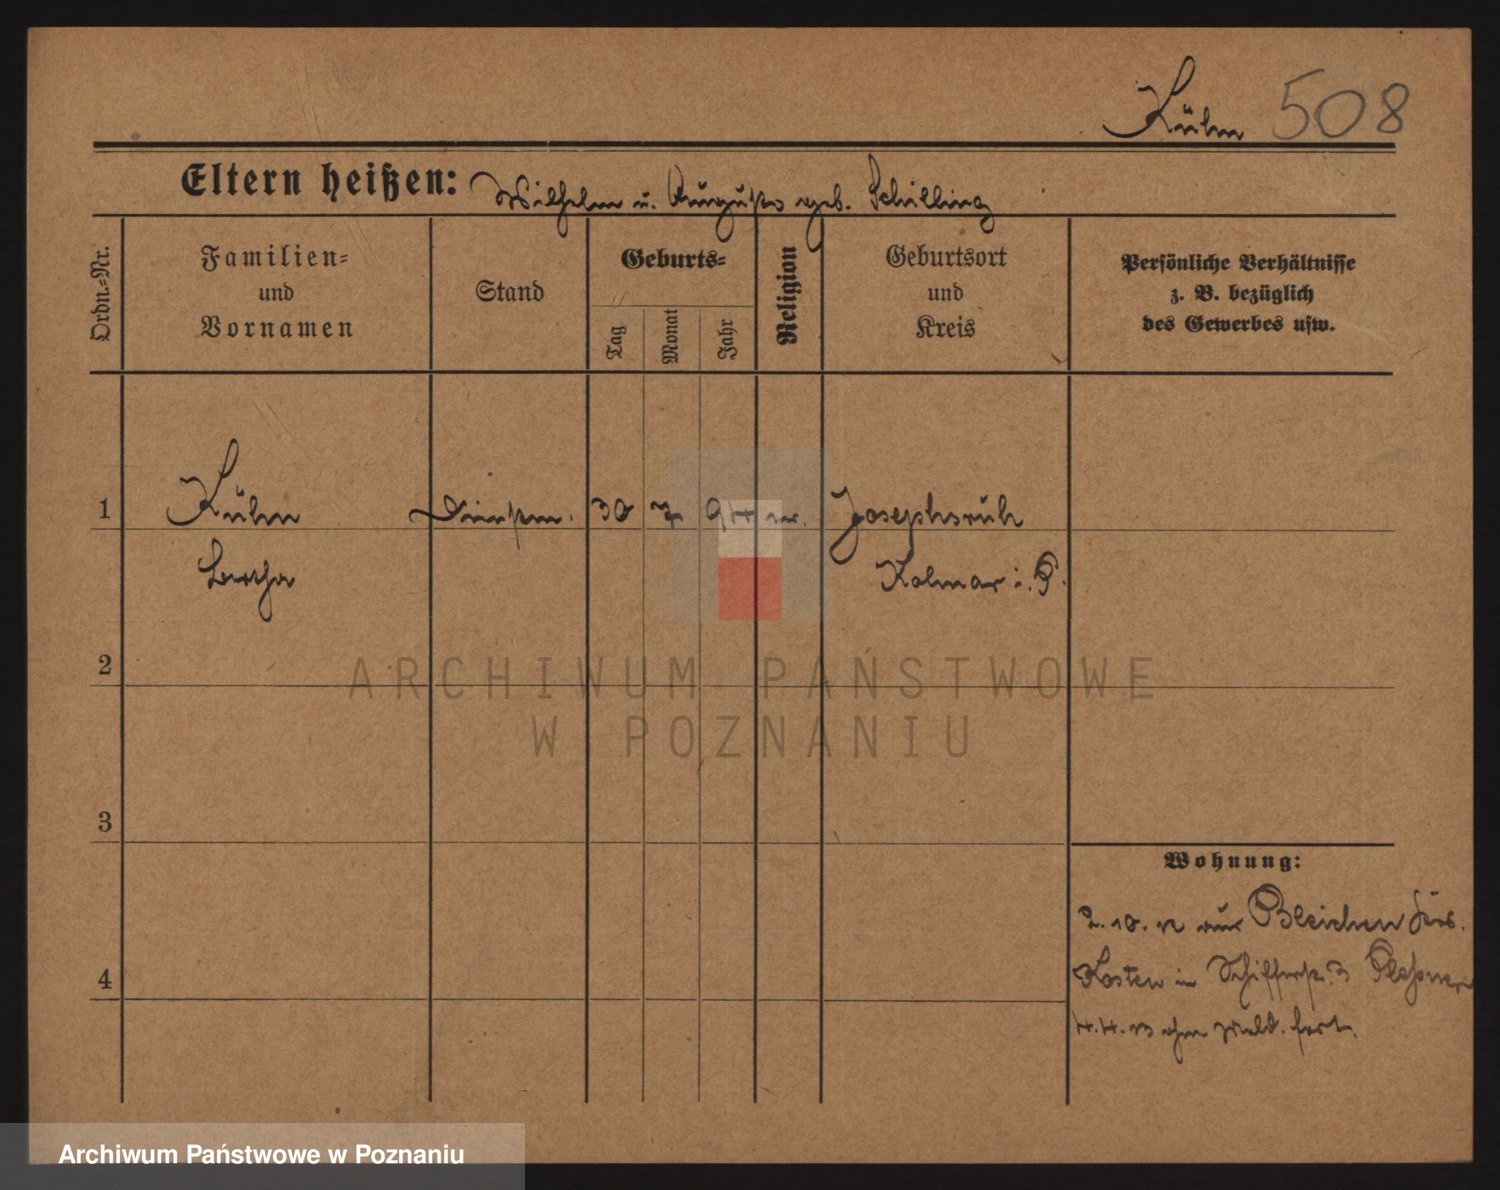 Kühn 508
Eltern heißen: Wilhelm u. Auguste geb. Schilling
Ordn.=Nr.
Familien=
und
Vornamen
Stand
Geburts=
Tag
Monat
Jahr
Religion
Geburtsort
und
Kreis
Persönliche Verhältnisse
z. B. bezüglich
des Gewerbes usw.
1 Kühn Dienstm. 30 7 94 Josephsruh
Bertha Kolmar i. P.
2
3
4
Wohnung:
2.10.12 aus Bleichen Krs.
Kosten in Schifferstr. 3
4.4.13 ohne Meld. fort.
ARCHIWUM PAŃSTWOWE
W POZNANIU
Archiwum Państwowe w Poznaniu